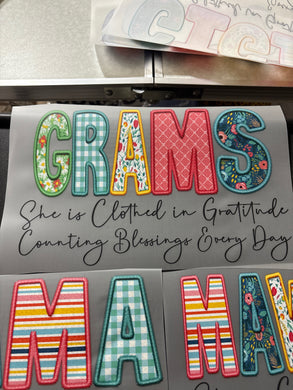 GRAMS
She is Clothed in Gratitude
Counting Blessings Every Day
MA
MA